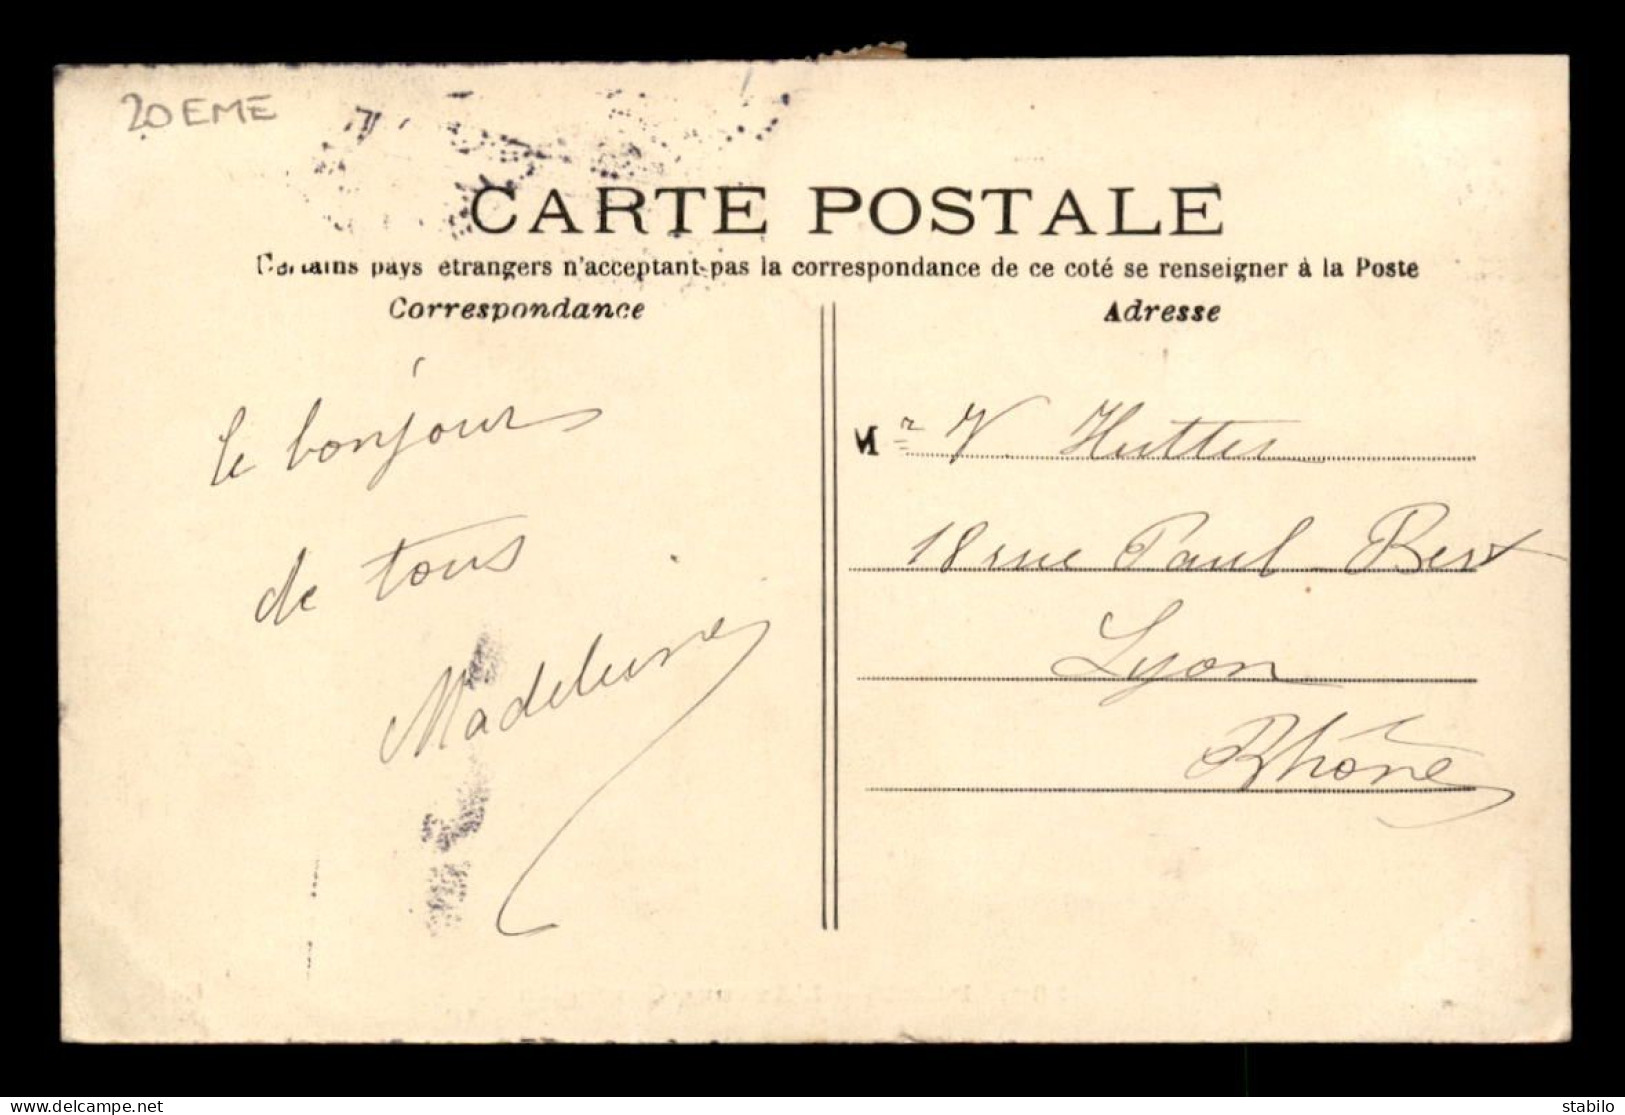 20EME
CARTE POSTALE
Certains pays etrangers n'acceptant pas la correspondance de ce coté se renseigner à la Poste
Correspondance
Adresse
le bonjour
de tous
Madeleine
Mr V. Hutter
18 rue Paul Bert
Lyon
Rhône
delcampe.net
stabilo